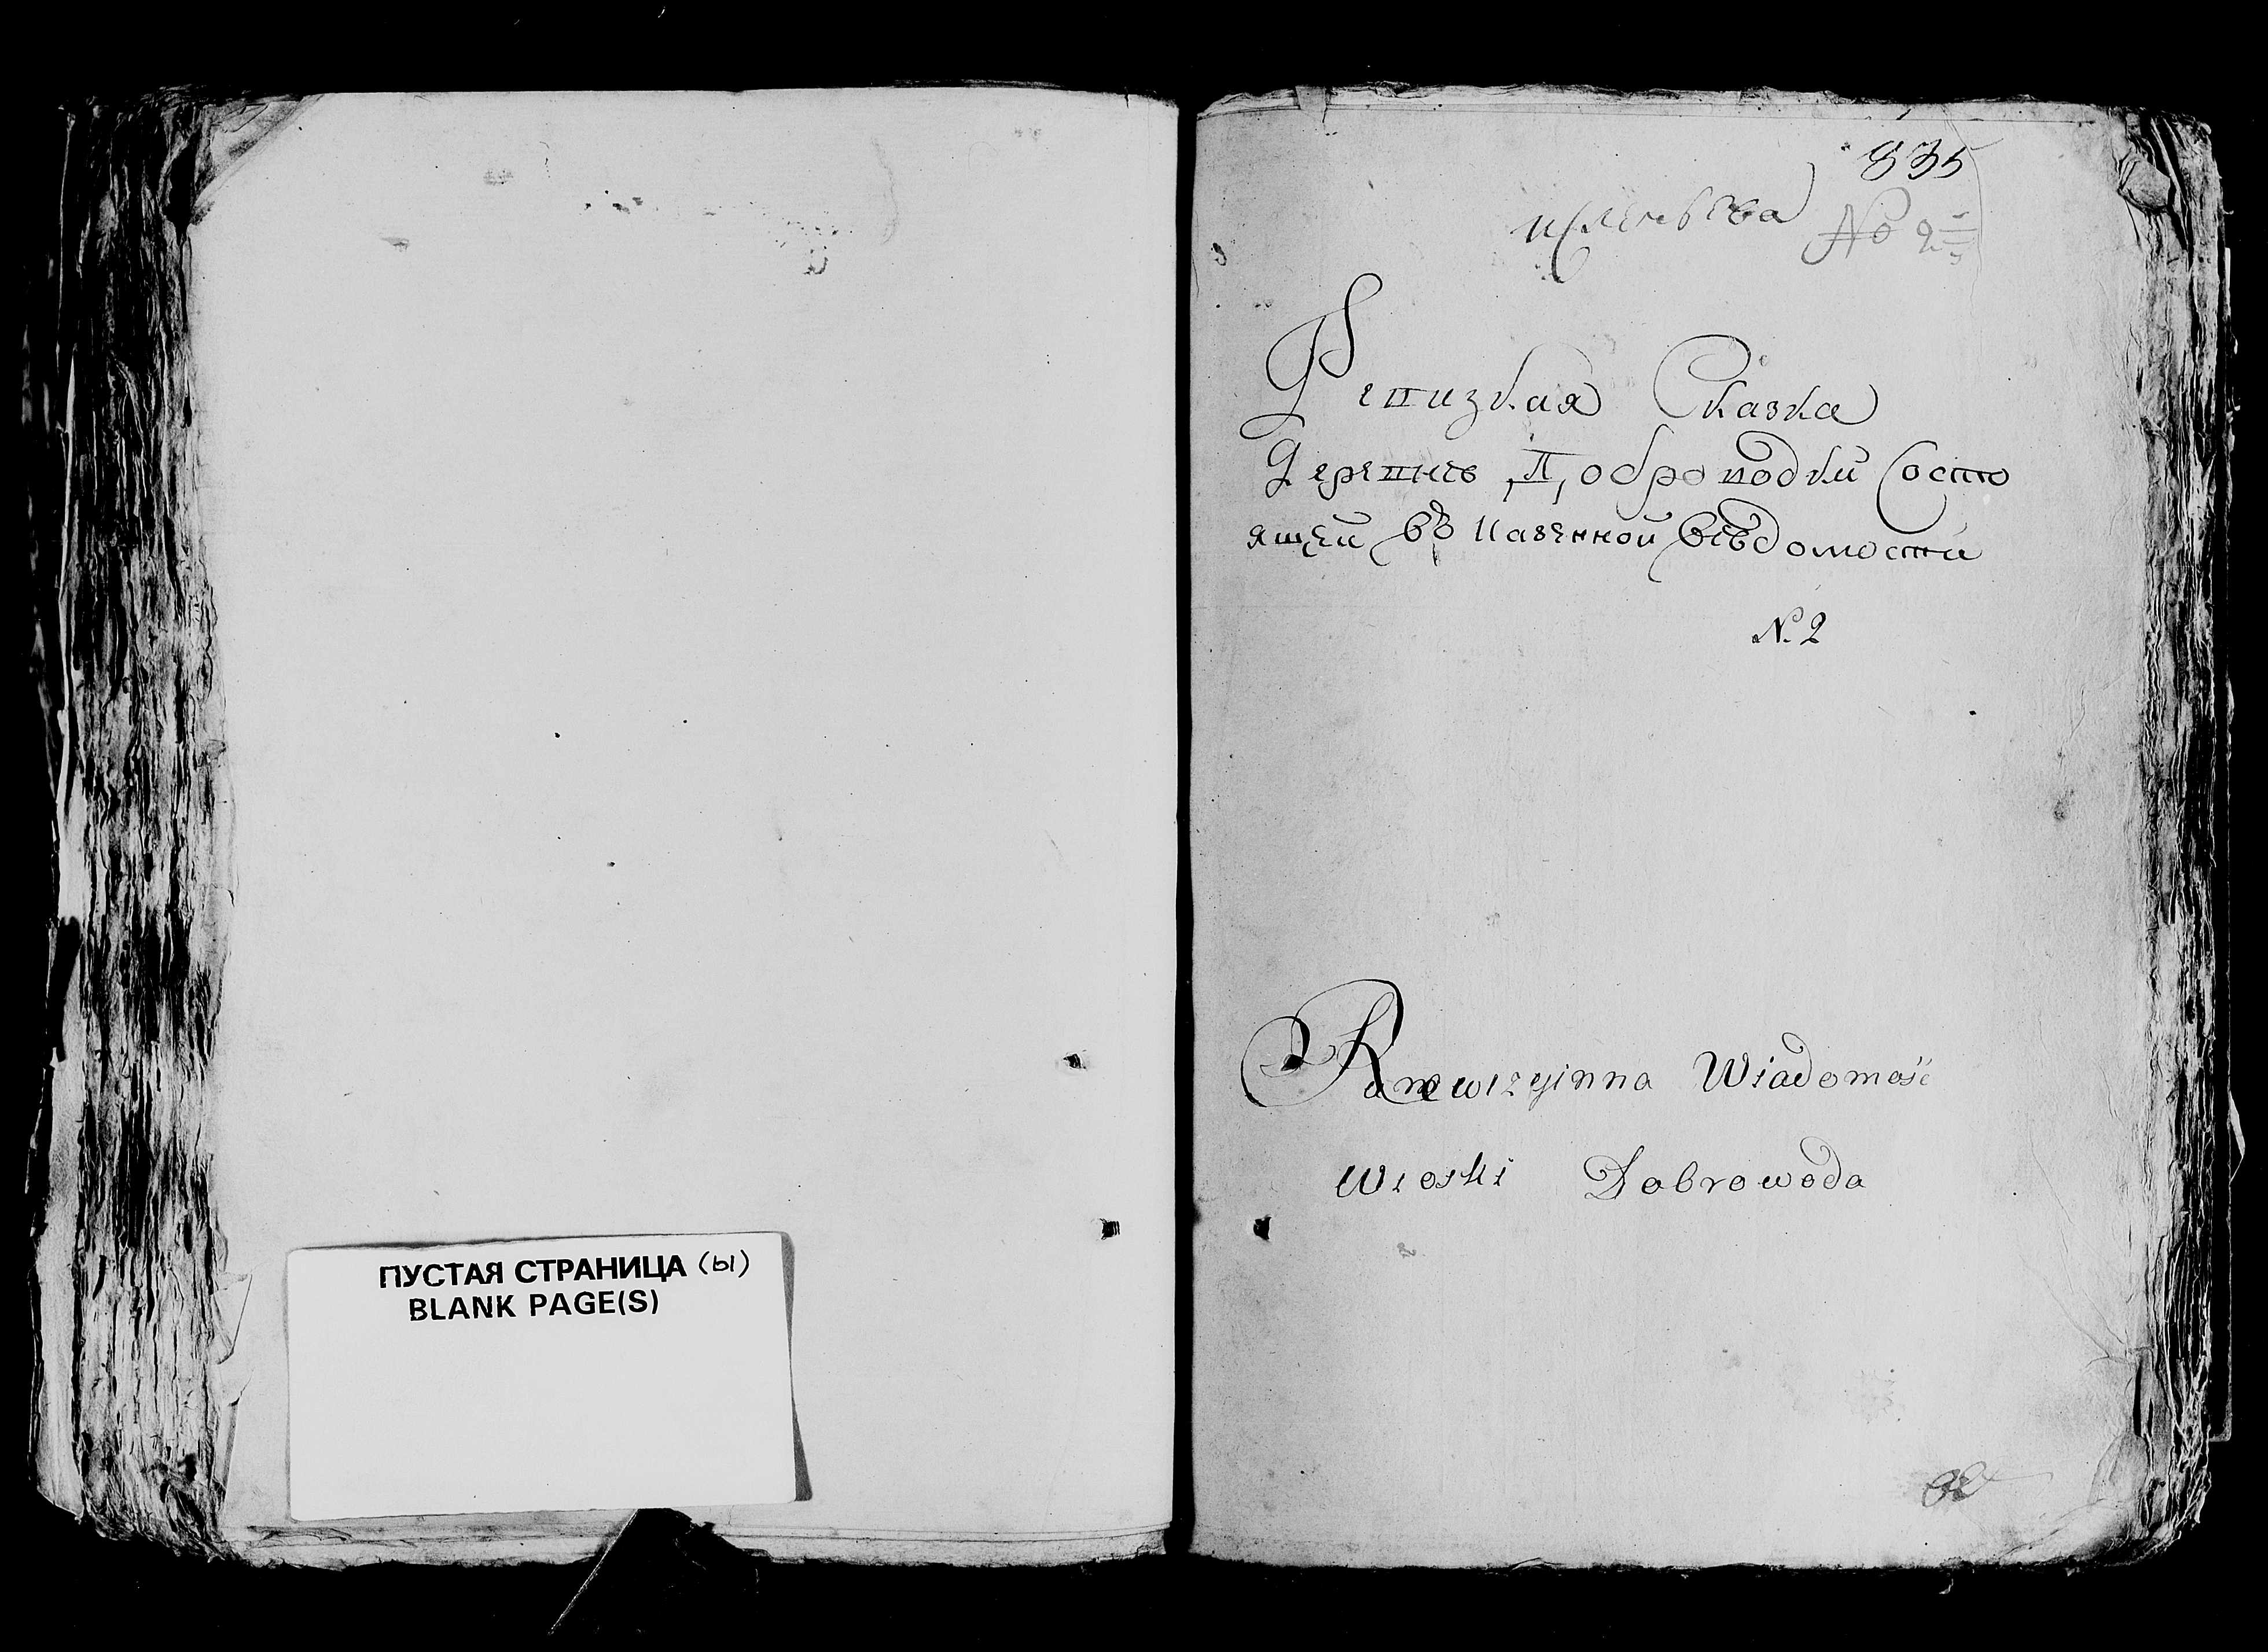 ПУСТАЯ СТРАНИЦА (ы)
BLANK PAGE(S)
835
No 2
Ревизкая Сказка
Деревнѣ Доброводки Состо
ящей въ Казенной вѣдомости
N. 2
Rewizyinna Wiadomość
Wioski Dobrowoda